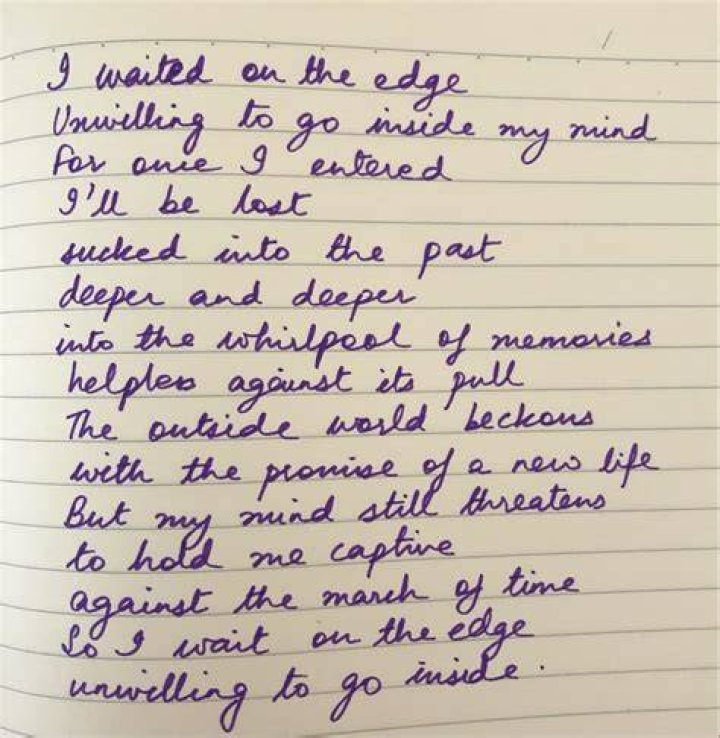 I waited on the edge
Unwilling to go inside my mind
for once I entered
I'll be lost
sucked into the past
deeper and deeper
into the whirlpool of memories
helpless against its pull
The outside world beckons
with the promise of a new life
But my mind still threatens
to hold me captive
against the march of time
So I wait on the edge
unwilling to go inside.